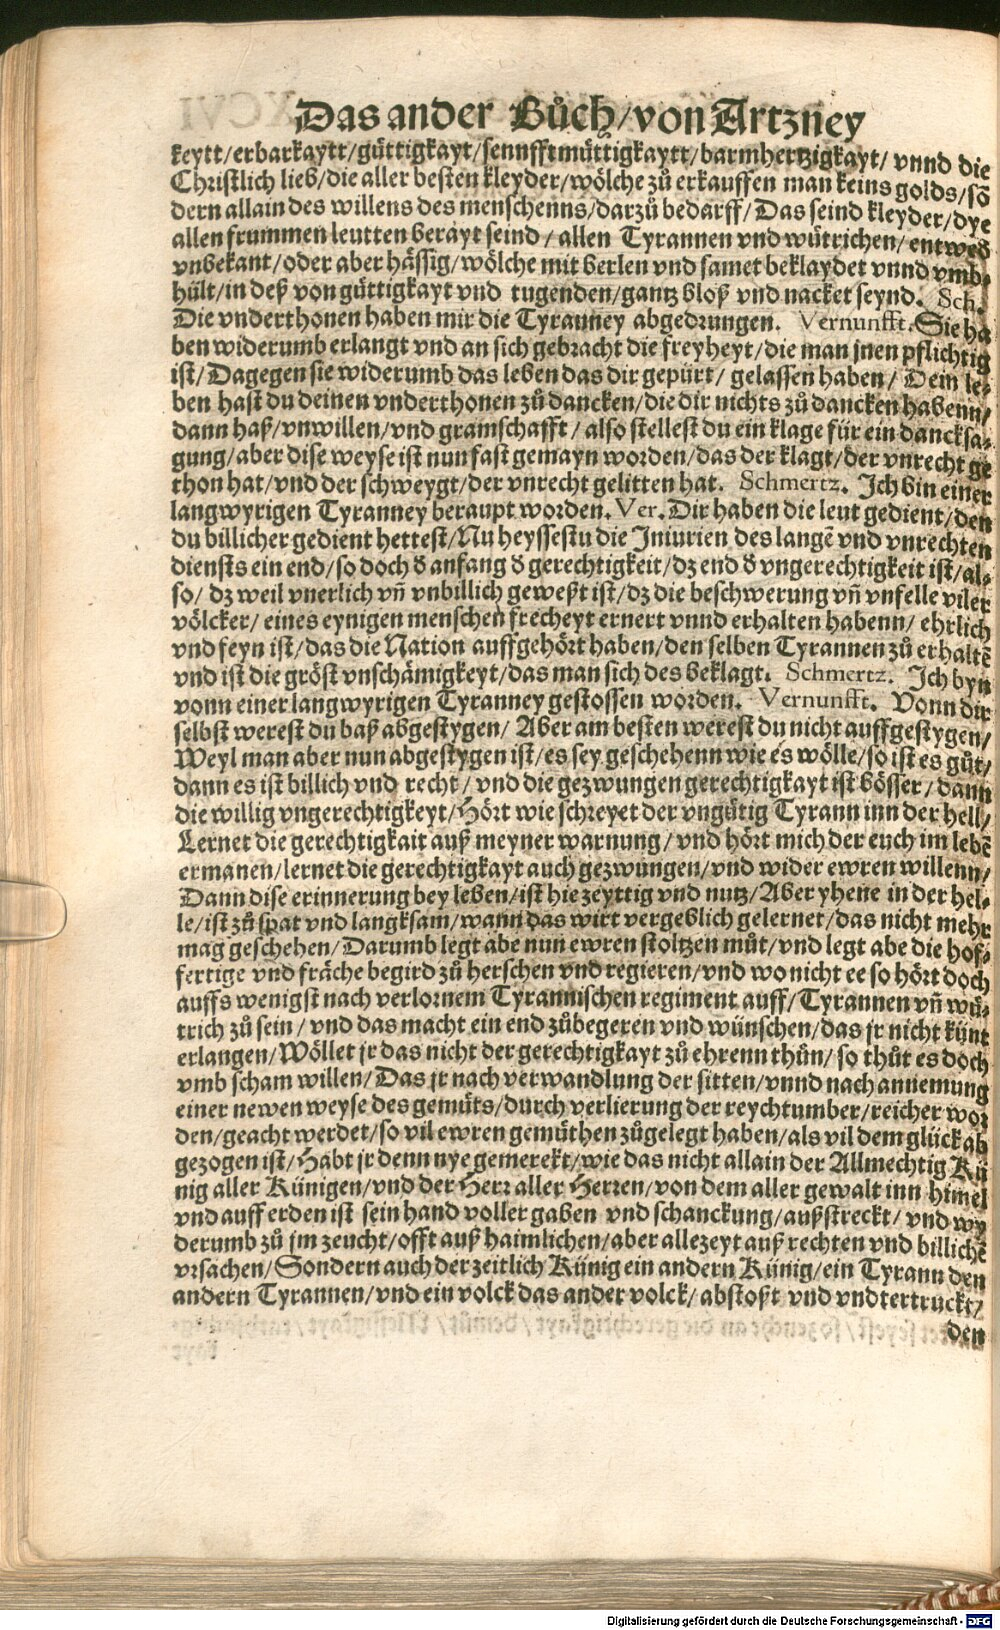 Das ander Bůch/von Artzney
keytt/erbarkaytt/güttigkayt/sennfftmüttigkaytt/barmhertzigkayt/ vnnd die
Christlich lieb/die aller besten kleyder/wölche zů erkauffen man keins golds/sō
dern allain des willens des menschenns/darzů bedarff/Das seind kleyder/dye
allen frummen leutten berayt seind/allen Tyrannen vnd wütrichen/entwed̄
vnbekant/oder aber hässig/wölche mit berlen vnd samet beklaydet vnnd vmb-
hült/in deß von güttigkayt vnd tugenden/gantz bloß vnd nacket seynd. Sch.
Die vnderthonen haben mir die Tyranney abgedrungen. Vernunfft. Sie ha
ben widerumb erlangt vnd an sich gebracht die freyheyt/die man jnen pflichtig
ist/Dagegen sie widerumb das leben das dir gepürt/gelassen haben/Dein le-
ben hast du deinen vnderthonen zů dancken/die dir nichts zů dancken habenn/
dann haß/vnwillen/vnd gramschafft/also stellest du ein klage für ein dancksa-
gung/aber dise weyse ist nun fast gemayn worden/das der klagt/der vnrecht ge
thon hat/vnd der schweygt/der vnrecht gelitten hat. Schmertz. Ich bin einer
langwyrigen Tyranney beraupt worden. Ver. Dir haben die leut gedient/den
du billicher gedient hettest/Nu heyssestu die Iniurien des langē vnd vnrechten
diensts ein end/so doch d̄ anfang d̄ gerechtigkeit/dz end d̄ vngerechtigkeit ist/al-
so/dz weil vnerlich vn̄ vnbillich geweßt ist/dz die beschwerung vn̄ vnfelle viler
völcker/eines eynigen menschen frecheyt ernert vnnd erhalten habenn/ehrlich
vnd feyn ist/das die Nation auffgehört haben/den selben Tyrannen zů erhaltē
vnd ist die gröst vnschämigkeyt/das man sich des beklagt. Schmertz. Ich byn
vonn einer langwyrigen Tyranney gestossen worden. Vernunfft. Vonn dir
selbst werest du baß abgestygen/Aber am besten werest du nicht auffgestygen/
Weyl man aber nun abgestygen ist/es sey geschehenn wie es wölle/so ist es gůt/
dann es ist billich vnd recht/vnd die gezwungen gerechtigkayt ist bösser/dann
die willig vngerechtigkeyt/Hört wie schreyet der vngütig Tyrann inn der hell/
Lernet die gerechtigkait auß meyner warnung/vnd hört mich der euch im lebē
ermanen/lernet die gerechtigkayt auch gezwungen/vnd wider ewren willenn/
Dann dise erinnerung bey leben/ist hie zeyttig vnd nutz/Aber yhene in der hel-
le/ist zů spat vnd langksam/wann das wirt vergeblich gelernet/das nicht mehr
mag geschehen/Darumb legt abe nun ewren stoltzen můt/vnd legt abe die hof-
fertige vnd fräche begird zů herschen vnd regieren/vnd wo nicht ee so hört doch
auffs wenigst nach verlornem Tyrannischen regiment auff/Tyrannen vn̄ wü-
trich zů sein/vnd das macht ein end zůbegeren vnd wünschen/das jr nicht künt
erlangen/Wöllet jr das nicht der gerechtigkayt zů ehrenn thůn/so thůt es doch
vmb scham willen/Das jr nach verwandlung der sitten/vnnd nach annemung
einer newen weyse des gemüts/durch verlierung der reychtumber/reicher wor
den/geacht werdet/so vil ewren gemüthen zůgelegt haben/als vil dem glück ab
gezogen ist/Habt jr denn nye gemerckt/wie das nicht allain der Allmechtig Kü
nig aller Künigen/vnd der Herr aller Herren/von dem aller gewalt inn himel
vnd auff erden ist sein hand voller gaben vnd schanckung/außstreckt/vnd wy
derumb zů jm zeucht/offt auß haimlichen/aber allezeyt auß rechten vnd billichē
vrsachen/Sondern auch der zeitlich Künig ein andern Künig/ein Tyrann den
andern Tyrannen/vnd ein volck das ander volck/abstoßt vnd vndtertruckt/
den
Digitalisierung gefördert durch die Deutsche Forschungsgemeinschaft - DFG